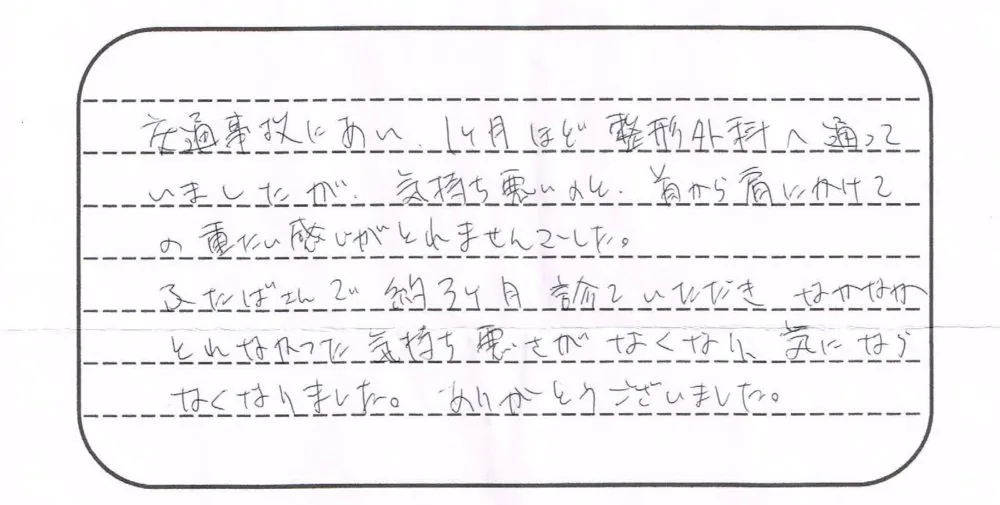 交通事故にあい、1ヶ月ほど整形外科へ通って
いましたが、気持ち悪いのと、首から肩にかけて
の重たい感じがとれませんでした。
ふたばさんで約3ヶ月診ていただき なかなか
とれなかった気持ち悪さがなくなり、気になら
なくなりました。ありがとうございました。